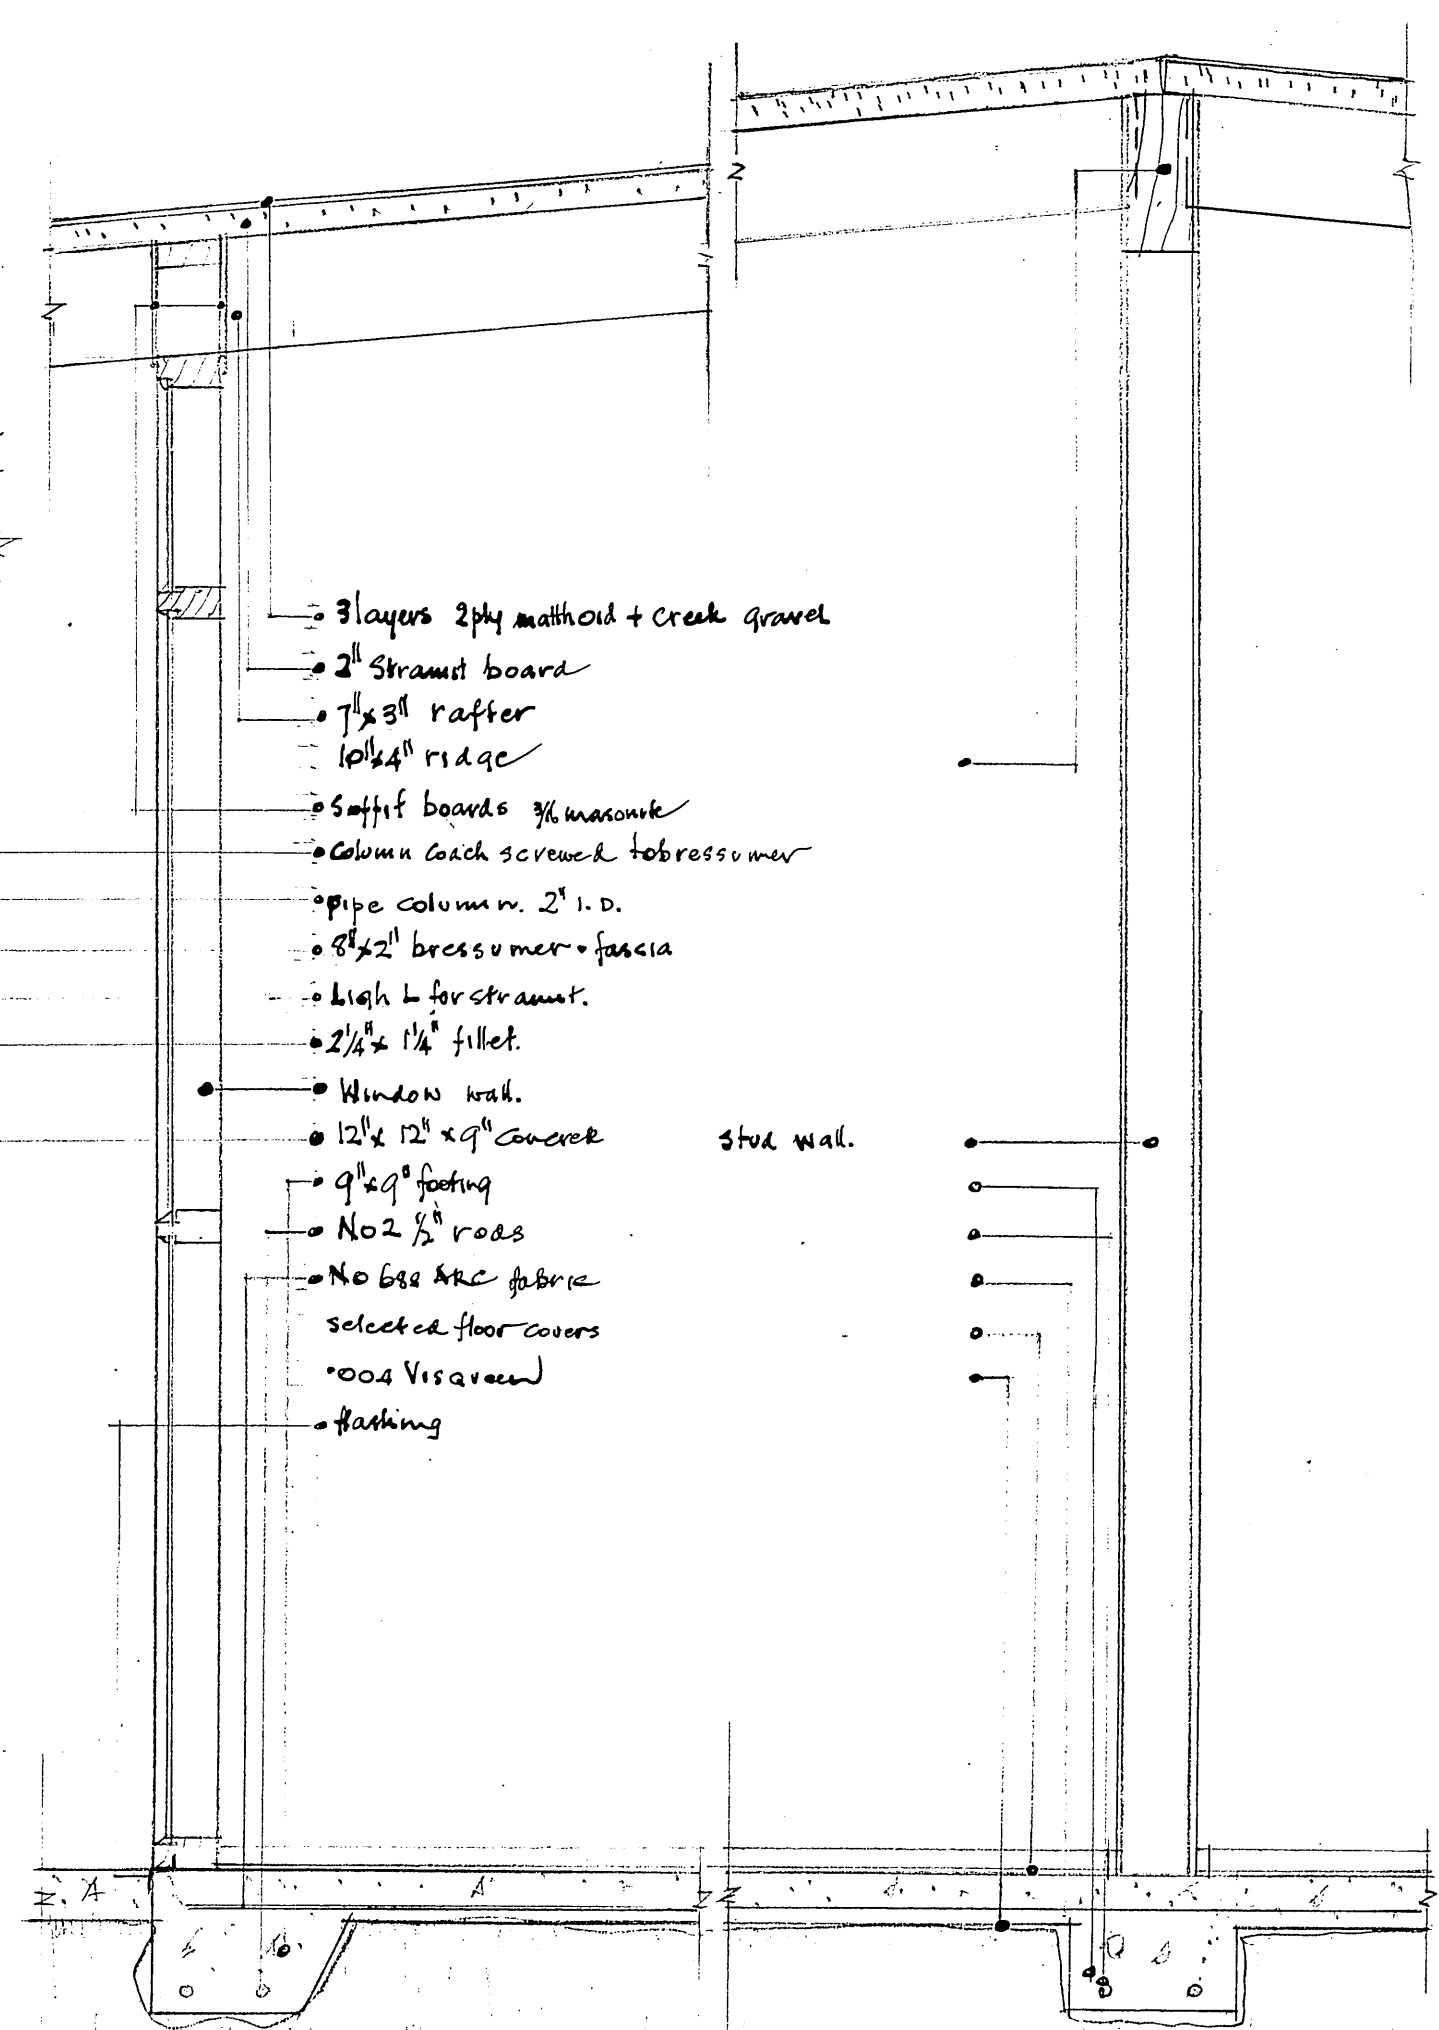 3 layers 2ply malthoid + creek gravel
2" Stramit board
7"x3" rafter
10"x4" ridge
Soffit boards 3/16 masonite
Column coach screwed to bressumer
pipe column. 2" I.D.
8"x2" bressumer • fascia
L for stramit.
2 1/4" x 1 1/4" fillet.
Window wall.
12" x 12" x 9" concrete
stud wall.
9"x9" footing
No 2 1/2" rods
No 688 ARC fabric
selected floor covers
.004 Visqueen
flashing